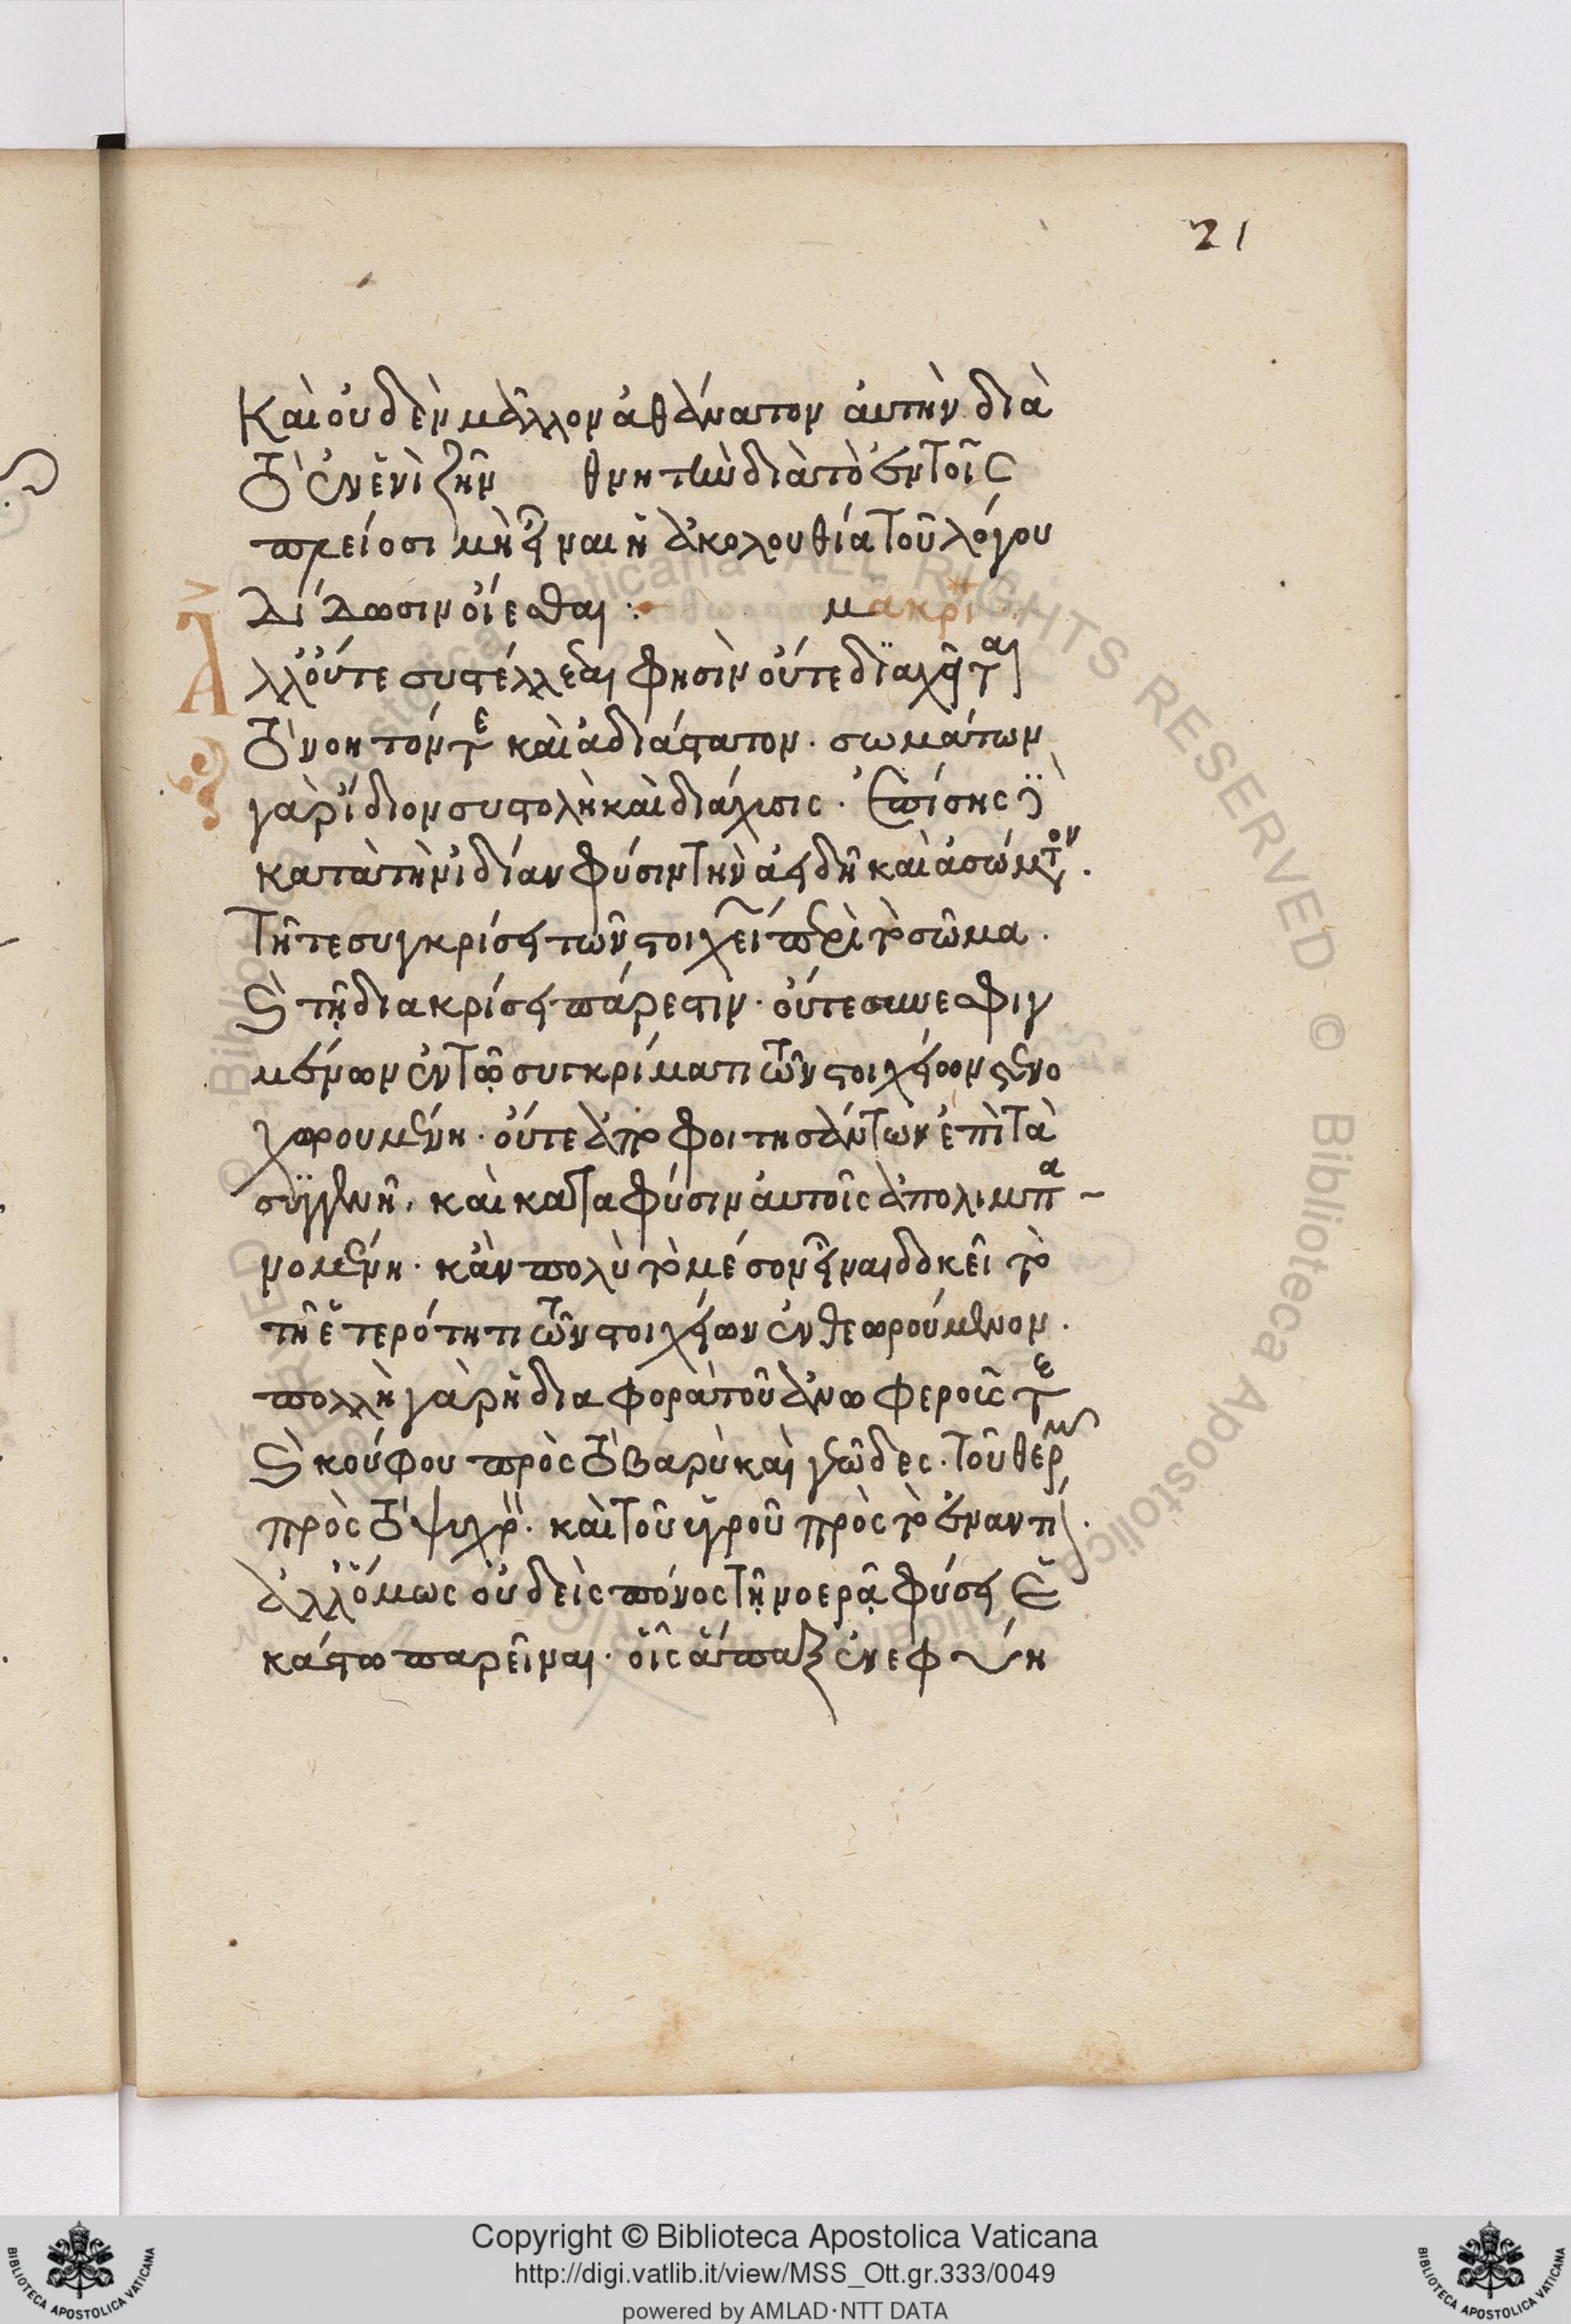 21
Καὶ οὐδὲν μᾶλλον ἀθάνατον αὐτὴν διὰ
τὸ ἐν ἑνὶ ζῆν θνητὴν διὰ τὸ ἐν τοῖς
πλείοσι μὴ εἶναι ἡ ἀκολουθία τοῦ λόγου
δίδωσιν οἴεσθαι :· μακρὶ
Ἀλλ' οὔτε συστέλλεσθαι φησὶν οὔτε διαχεῖται
τὸ νοητόν τε καὶ ἀδιάστατον· σωμάτων
γὰρ ἴδιον συστολὴ καὶ διάχυσις· ἐπίσης δὲ
κατὰ τὴν ἰδίαν φύσιν τὴν ἀειδῆ καὶ ἀσώματον·
τῇ τε συγκρίσει τῶν στοιχείων περὶ τὸ σῶμα·
καὶ τῇ διακρίσει πάρεστιν· οὔτε συνεσφιγ
μένων ἐν τῷ συγκρίματι τῶν στοιχείων στενο
χωρουμένη· οὔτε ἀποφοιτησάντων ἐπὶ τὰ
συγγενῆ, καὶ κατὰ φύσιν αὐτοῖς ἀπολιμπα
νομένη· κἂν πολὺ τὸ μέσον εἶναι δοκεῖ τὸ
τῇ ἑτερότητι τῶν στοιχείων ἐνθεωρούμενον·
πολλὴ γὰρ ἡ διαφορὰ τοῦ ἀνωφεροῦς τε
καὶ κούφου πρὸς τὸ βαρὺ καὶ γεῶδες· τοῦ θερμοῦ
πρὸς τὸ ψυχρὸν· καὶ τοῦ ὑγροῦ πρὸς τὸ ἐναντίον·
ἀλλ' ὅμως οὐδεὶς πόνος τῇ νοερᾷ φύσει ἑ
κάστω παρεῖναι· οἷς ἅπαξ ἐνεφύη
Copyright © Biblioteca Apostolica Vaticana
http://digi.vatlib.it/view/MSS_Ott.gr.333/0049
powered by AMLAD·NTT DATA
BIBLIOTECA APOSTOLICA VATICANA
BIBLIOTECA APOSTOLICA VATICANA